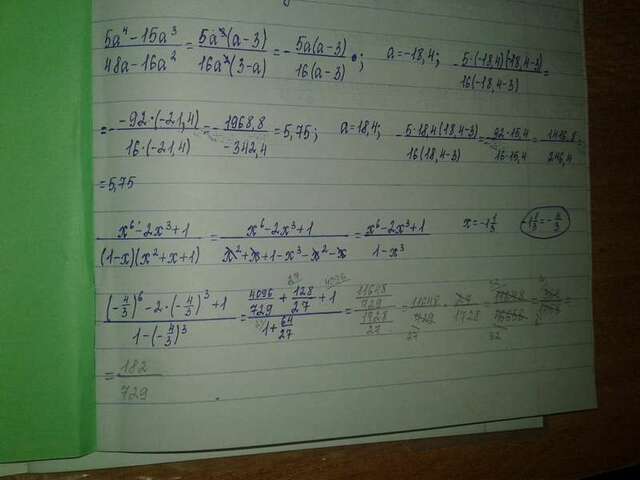 (5a⁴-15a³)/(48a-16a²) = 5a³(a-3)/16a(3-a) = -5a(a-3)/16(a-3); a=-18,4; 5·(-18,4)(-18,4-3)/16(-18,4-3) =
= - -92·(-21,4)/16·(-21,4) = - 1968,8/-342,4 = 5,75; a=18,4; 5·18,4(18,4-3)/16(18,4-3) = 92·15,4/16·15,4 = 1416,8/246,4 =
= 5,75
(x⁶-2x³+1)/(1-x)(x²+x+1) = (x⁶-2x³+1)/(x²+x+1-x³-x²-x) = (x⁶-2x³+1)/(1-x³) x=-1 1/3 -1 1/3=-4/3
((-4/3)⁶-2·(-4/3)³+1)/(1-(-4/3)³) = (4096/729+128/27+1)/(1+64/27) =
= 182/729